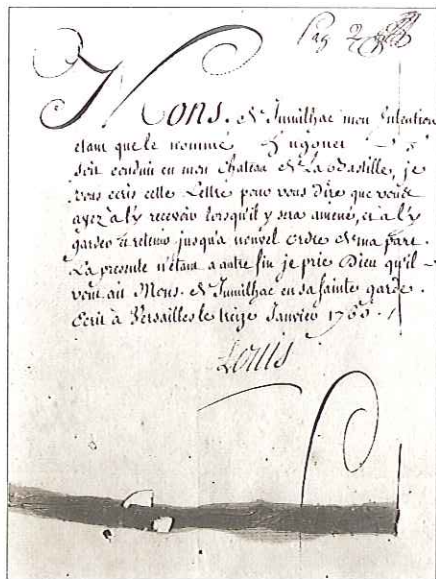 Pag 2
Mons. de Jumilhac mon Intention
etant que le nommé Hugonet
soit conduit en mon Chateau de La Bastille, je
vous ecris cette Lettre pour vous dire que vous
ayez a l'y recevoir lorsqu'il y sera amené, et a l'y
garder et retenir jusqu'a nouvel ordre de ma part.
La presente n'étant a autre fin je prie Dieu qu'il
vous ait Mons. de Jumilhac en sa sainte garde.
Ecrit à Versailles le treize Janvier 1765.
Louis